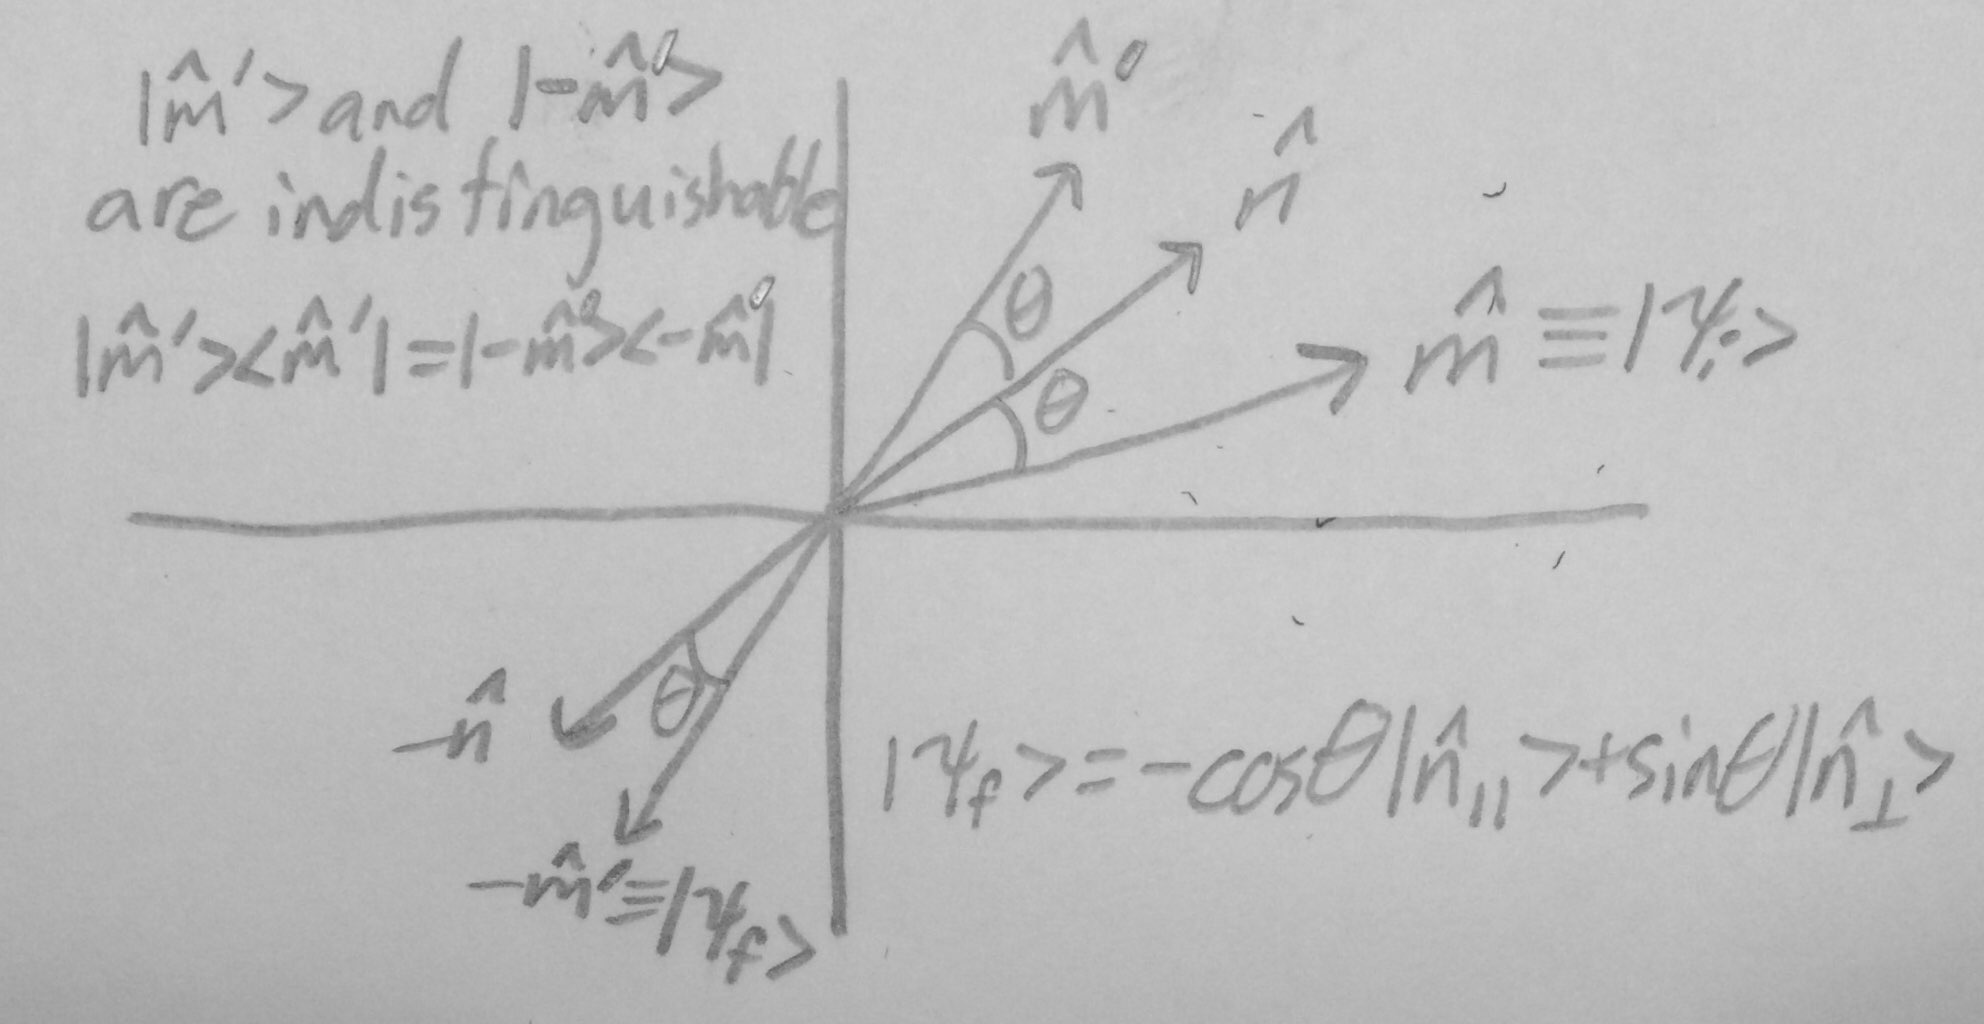 |m̂'> and |-m̂'>
are indistinguishable
|m̂'><m̂'|=|-m̂'><-m̂'|
m̂'
n̂
θ
θ
m̂ ≡ |ψᵢ>
-n̂
θ
-m̂' ≡ |ψ_f>
|ψ_f> = -cosθ|n̂_∥> + sinθ|n̂_⊥>